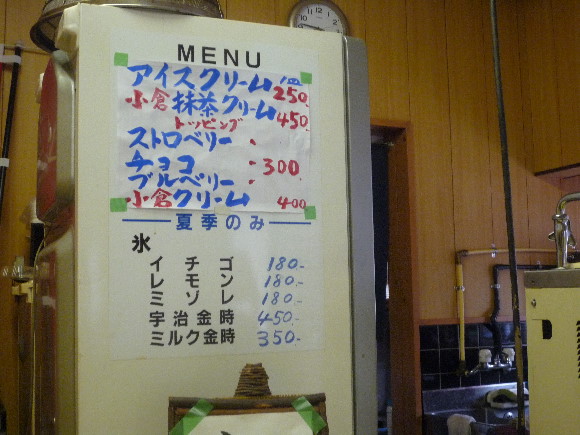 MENU
アイスクリーム 250
小倉抹茶クリーム 450
トッピング
ストロベリー
チョコ 300
ブルベリー
小倉クリーム 400
夏季のみ
氷
イチゴ 180.-
レモン 180.-
ミゾレ 180.-
宇治金時 450.-
ミルク金時 350.-